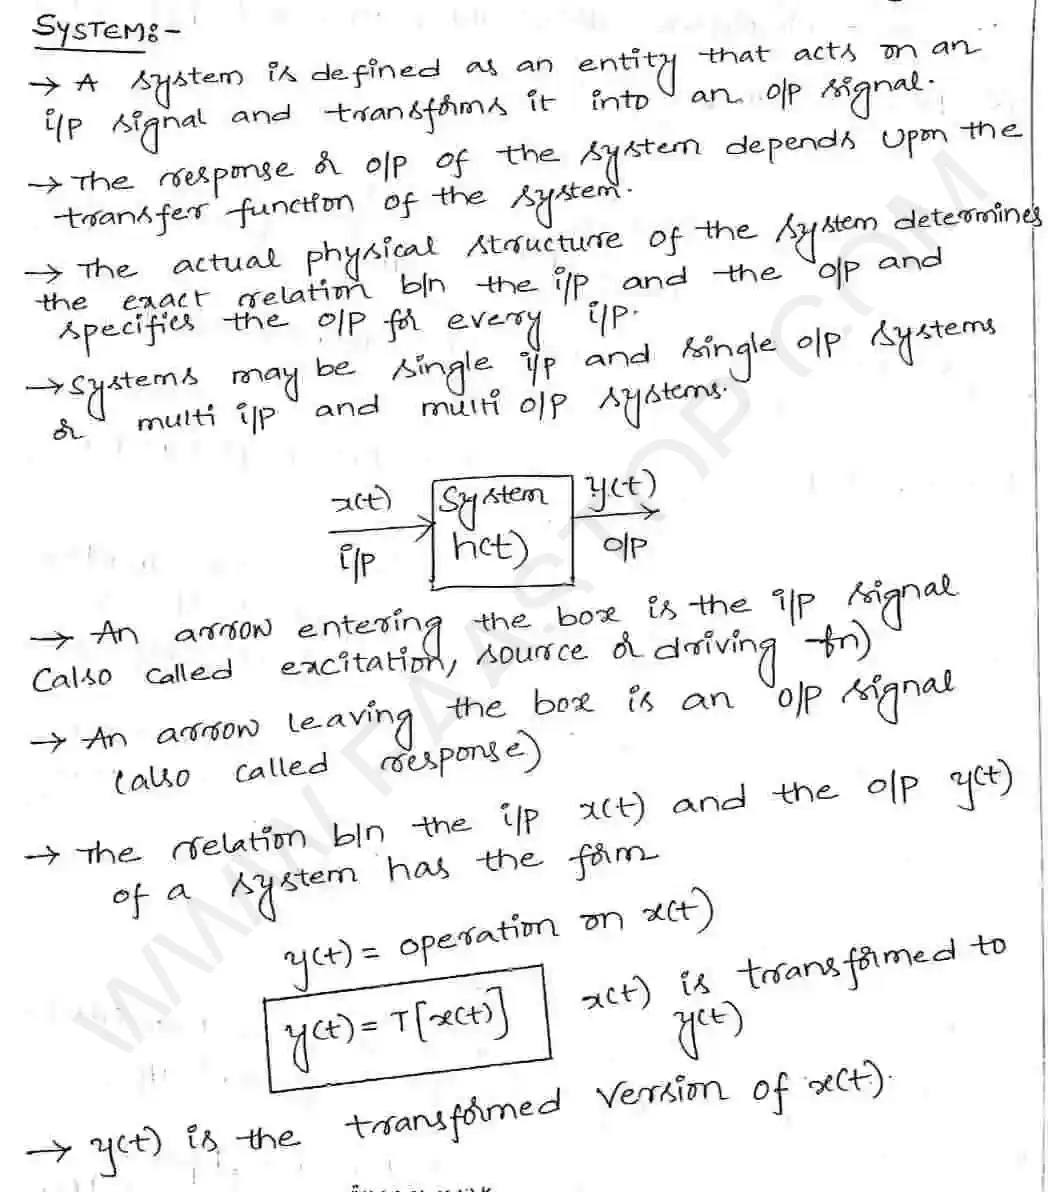 SYSTEM:-
→ A system is defined as an entity that acts on an
i/p signal and transforms it into an o/p signal.
→ The response or o/p of the system depends upon the
transfer function of the system.
→ The actual physical structure of the system determines
the exact relation b/n the i/p and the o/p and
specifies the o/p for every i/p.
→ Systems may be single i/p and single o/p systems
or multi i/p and multi o/p systems.
x(t)
i/p
System
h(t)
y(t)
o/p
→ An arrow entering the box is the i/p signal
(also called excitation, source or driving fn)
→ An arrow leaving the box is an o/p signal
(also called response)
→ The relation b/n the i/p x(t) and the o/p y(t)
of a system has the form
y(t) = operation on x(t)
y(t) = T[x(t)]
x(t) is transformed to
y(t)
→ y(t) is the transformed version of x(t).
WWW.FAASTOP.COM